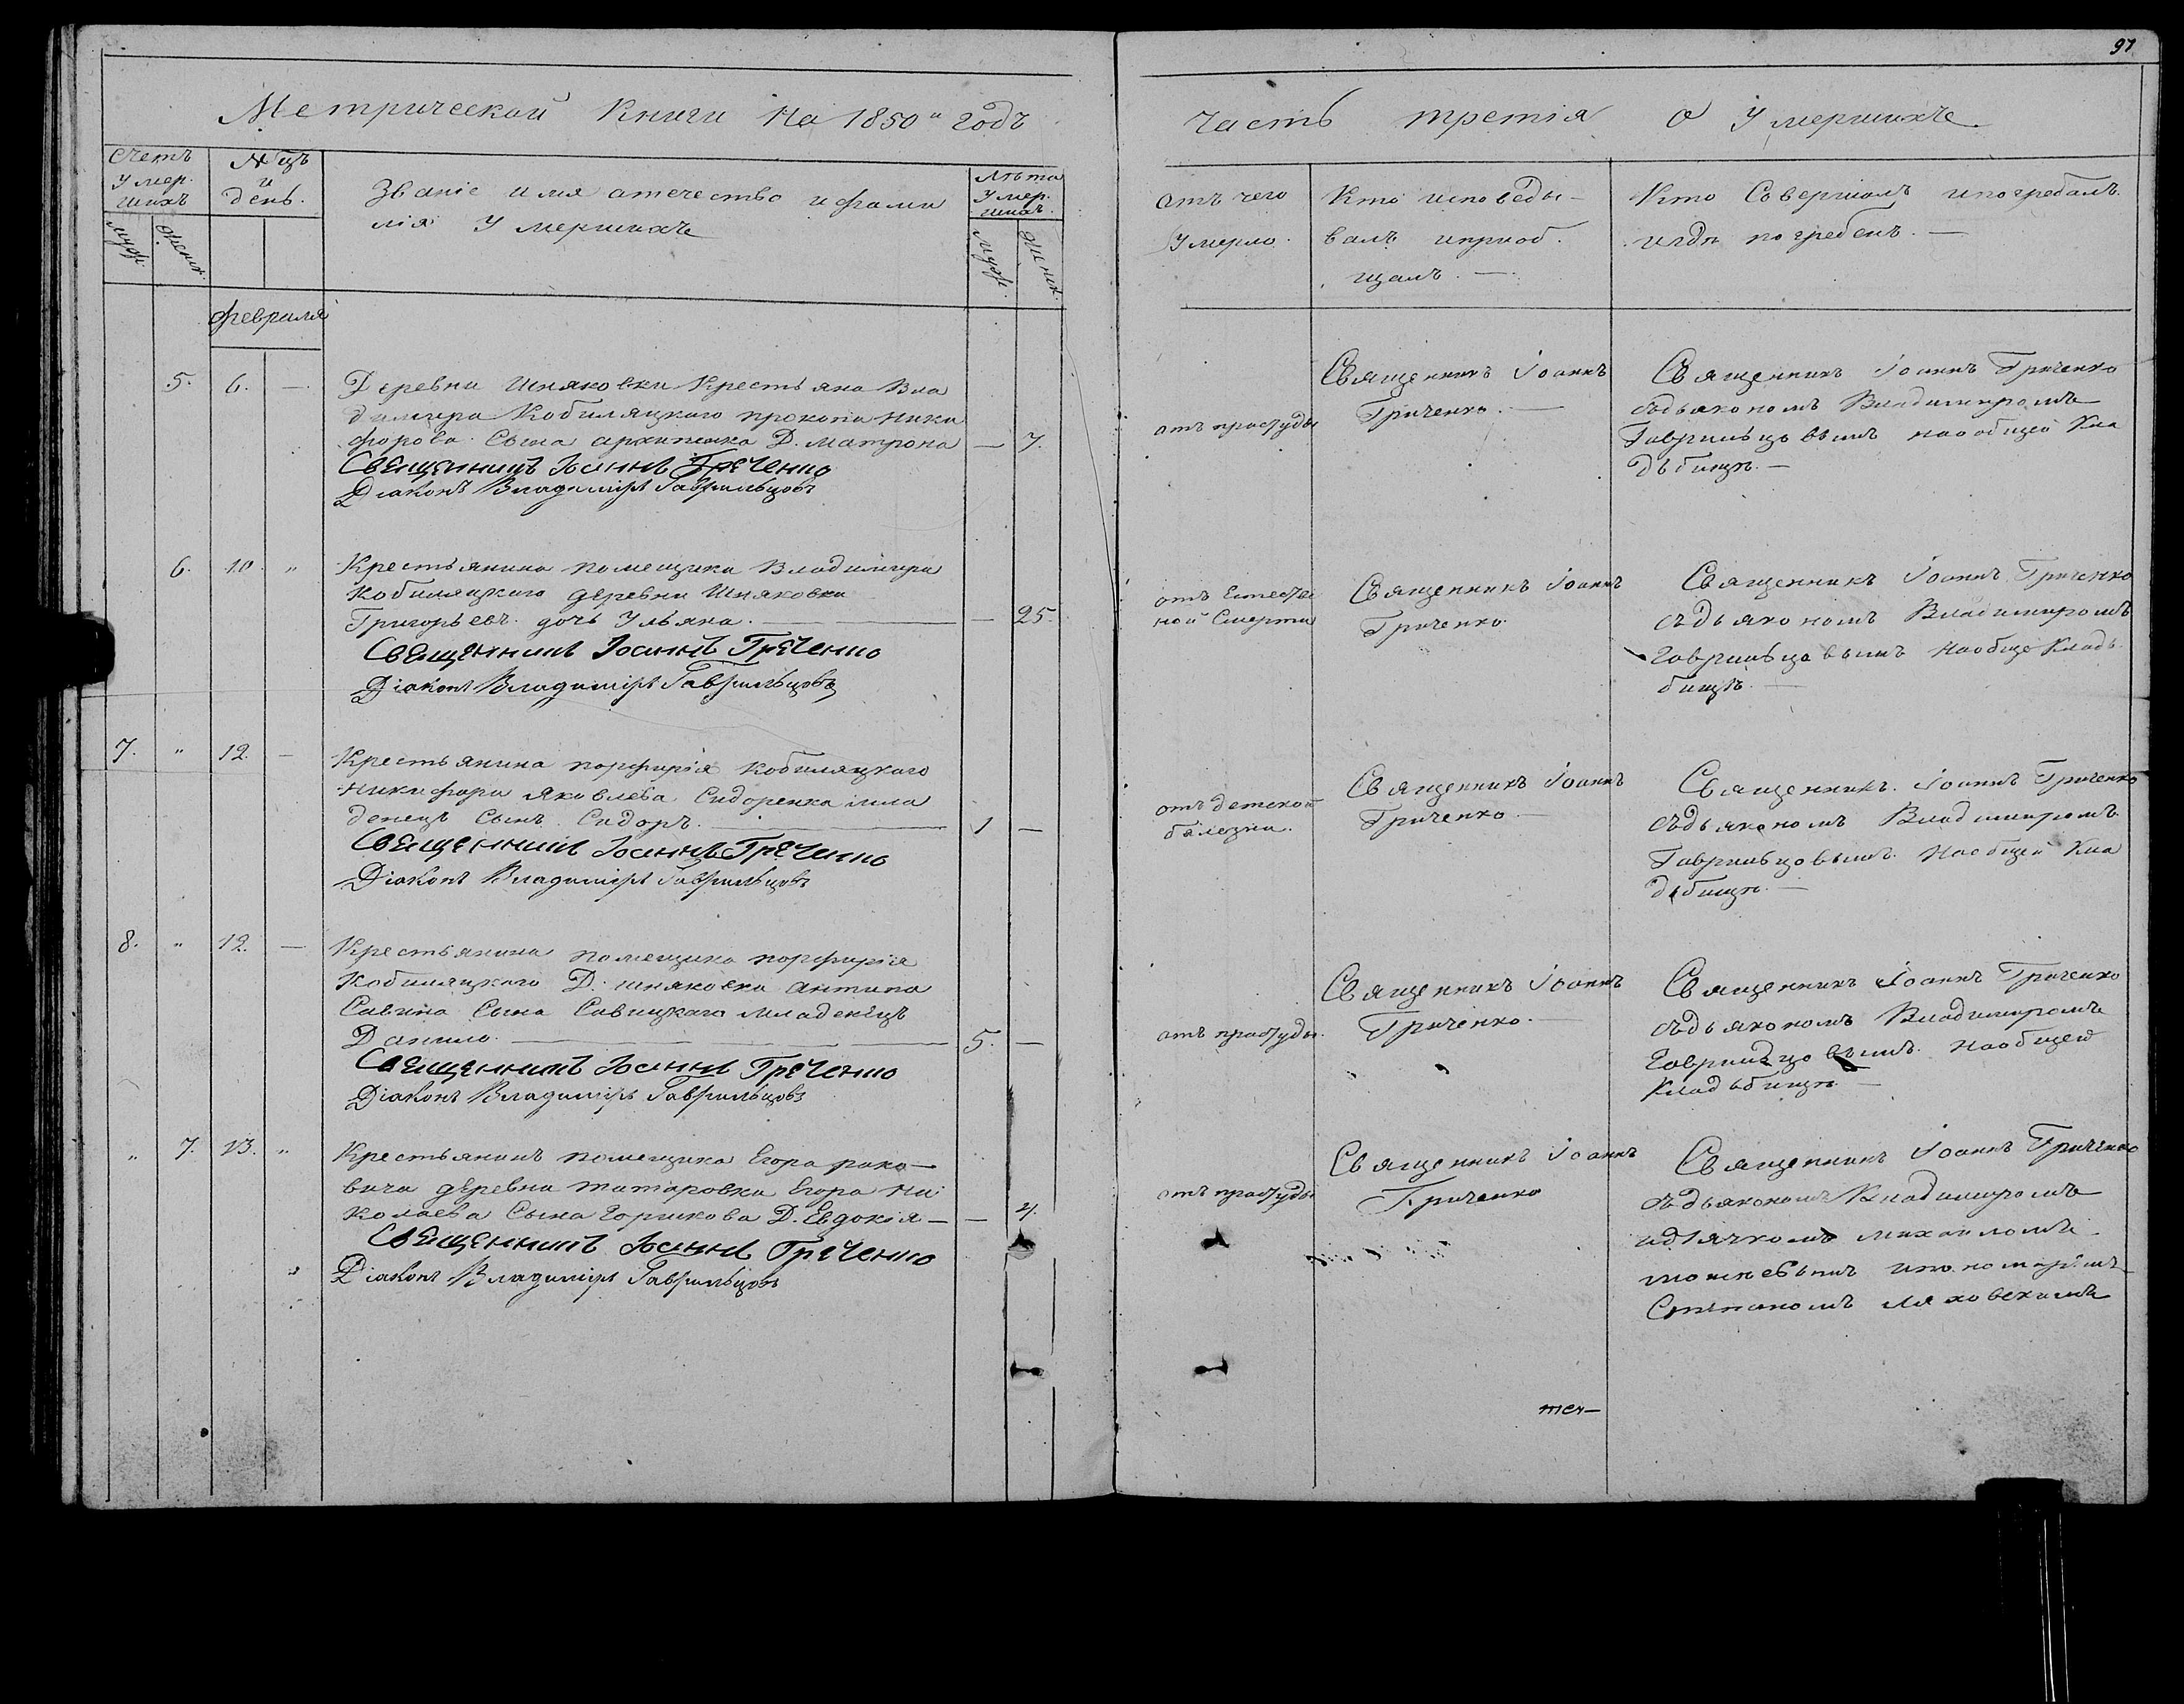 97
Метрической Книги На 1850й годъ
часть третія О Умершихъ
Счетъ Умер. шихъ
Мцъ и день.
Званіе имя отечество и фами
лія Умершихъ
Лѣта Умер. шихъ.
муж.
женск.
муж.
женск.
отъ чего
Умерло.
Кто исповеды-
валъ ипріоб.
щалъ. —
Кто Совершалъ ипогребалъ.
игдѣ погребенъ. —
февраля
5. 6. —
Деревни Шняковки Крестьяна Вла
димира Кобиляцкаго прокопа Ники
форова Сына архипенка Д. Матрона — 7.
Священникъ Іоаннъ Гриченко
Діаконъ Владиміръ Гаврильцовъ
отъ простуды
Священникъ Іоаннъ
Гриченко. —
Священникъ Іоаннъ Гриченко
содьякономъ Владимиромъ
Гаврильцовымъ наобщей Кла
дьбищѣ. —
6. 10. "
Крестьянина помещика Владимира
Кобиляцкаго деревни Шняковки
Григорьевъ дочь Ульяна. — — 25.
Священникъ Іоаннъ Гриченко
Діаконъ Владиміръ Гаврильцовъ
отъ Естестве
ной Смерти
Священникъ Іоаннъ
Гриченко.
Священникъ Іоаннъ Гриченко
съдьякономъ Владимиромъ
Гаврильцовымъ наобще Кладь
бищѣ. —
7. " 12. —
Крестьянина порфирія Кобиляцкаго
Никифора Яковлева Сидоренка мла
денецъ Сынъ Сидоръ. — 1 —
Священникъ Іоаннъ Гриченко
Діаконъ Владиміръ Гаврильцовъ
отъ детской
болезни.
Священникъ Іоаннъ
Гриченко —
Священникъ. Іоаннъ Гриченко
съдьякономъ Владимиромъ
Гаврильцовымъ. Наобщей Кла
дьбищѣ. —
8. " 12. —
Крестьянина помещика порфирія
Кобиляцкаго Д. Шняковки антипа
Савина Сына Савицкаго младенецъ
Данило. — 5. —
Священникъ Іоаннъ Гриченко
Діаконъ Владиміръ Гаврильцовъ
отъ простуды.
Священникъ Іоаннъ
Гриченко. —
Священникъ Іоаннъ Гриченко
съдьякономъ Владимиромъ
Гаврильцовымъ. Наобщей
Кладьбищѣ —
" 7. 13. "
Крестьянинъ помещика Егора рако-
вича деревни татаровки Егора Ни
колаева Сына Горшкова Д. Евдокія — — 4.
Священникъ Іоаннъ Гриченко
Діаконъ Владиміръ Гаврильцовъ
отъ простуды
Священникъ Іоаннъ
Гриченко
Священникъ Іоаннъ Гриченко
съдьякономъ Владимиромъ
идьячкомъ михаиломъ
ипономаремъ
Степаномъ Ляховскимъ